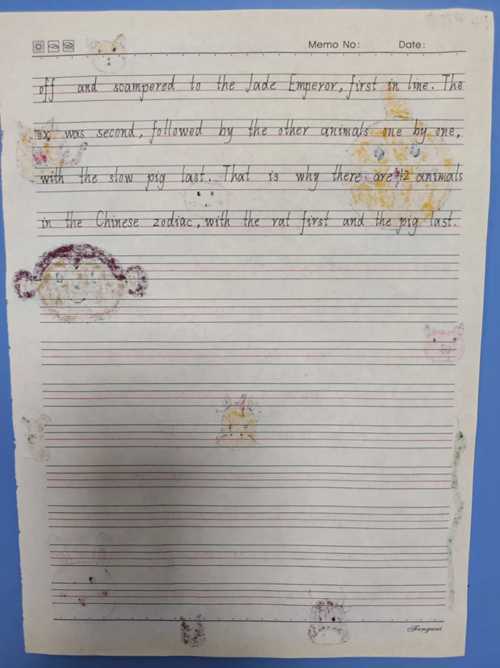 Memo No: Date:
off and scampered to the Jade Emperor, first in line. The
ox was second, followed by the other animals one by one,
with the slow pig last. That is why there are 12 animals
in the Chinese zodiac, with the rat first and the pig last.